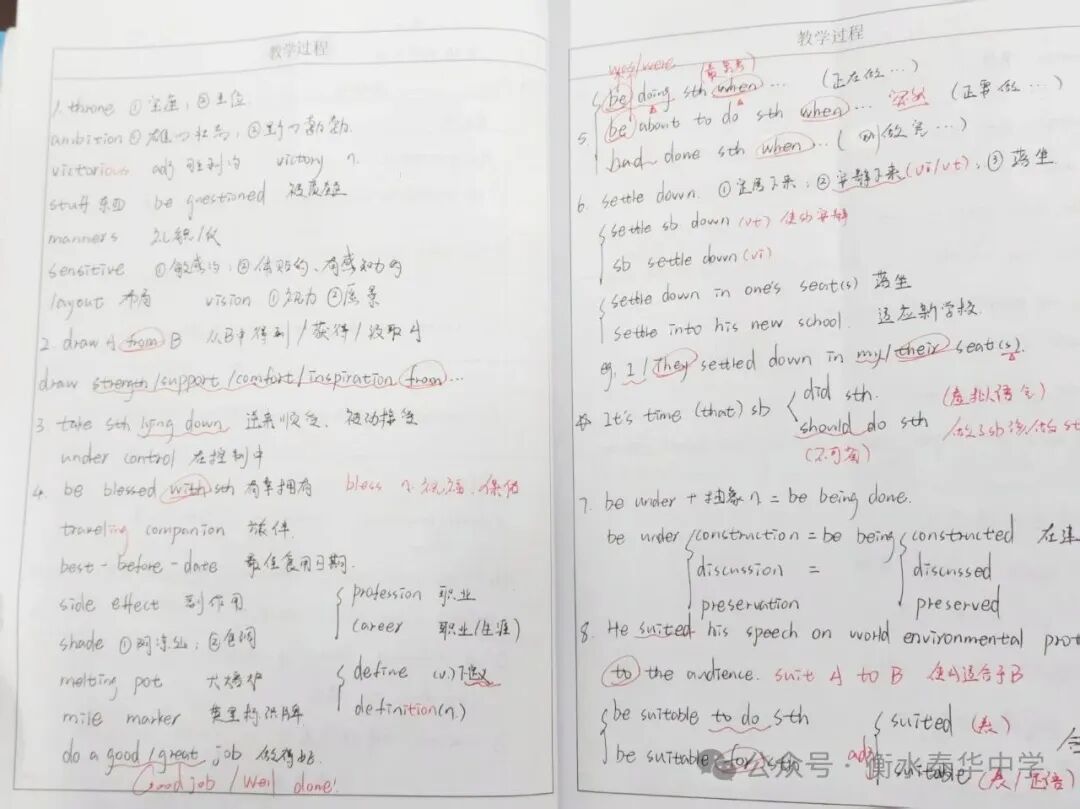 教学过程
1. throne ①宝座；②王位.
ambition ①雄心壮志；②野心勃勃.
victorious adj 胜利的 victory n.
stuff 东西 be questioned 被质疑
manners 礼貌/仪
sensitive ①敏感的；②体贴的、有感知力的
layout 布局 vision ①视力 ②愿景
2. draw A from B 从B中得到/获得/汲取A
draw strength/support/comfort/inspiration from…
3. take sth lying down 逆来顺受、被动接受
under control 在控制中
4. be blessed with sth 有幸拥有 bless n. 祝福、保佑
traveling companion 旅伴.
best-before-date 最佳食用日期.
side effect 副作用
profession 职业
shade ①阴凉处；②色调
career 职业(生涯)
melting pot 大熔炉
define (v.)下定义
mile marker 英里标识牌
definition(n.)
do a good/great job 做得好
Good job / Well done!
教学过程
was/were
be doing sth when … (正在做…)
5. be about to do sth when … 突然 (正要做…)
had done sth when … (刚做完…)
6. settle down. ①定居下来；②平静下来(vi/vt)；③落坐
settle sb down (vt) 使sb安静
sb settle down (vi)
settle down in one's seat(s) 落坐
settle into his new school. 适应新学校.
eg. I / They settled down in my/their seat(s).
It's time (that) sb did sth. (虚拟语气)
should do sth 做了sb该做的st
(不可省)
7. be under + 抽象n = be being done.
be under construction = be being constructed 在建
discussion = discussed
preservation preserved
8. He suited his speech on world environmental prot
to the audience. suit A to B 使A适合于B
be suitable to do sth suited (表)
be suitable for sth adj suitable (表/定语)
公众号·衡水泰华中学